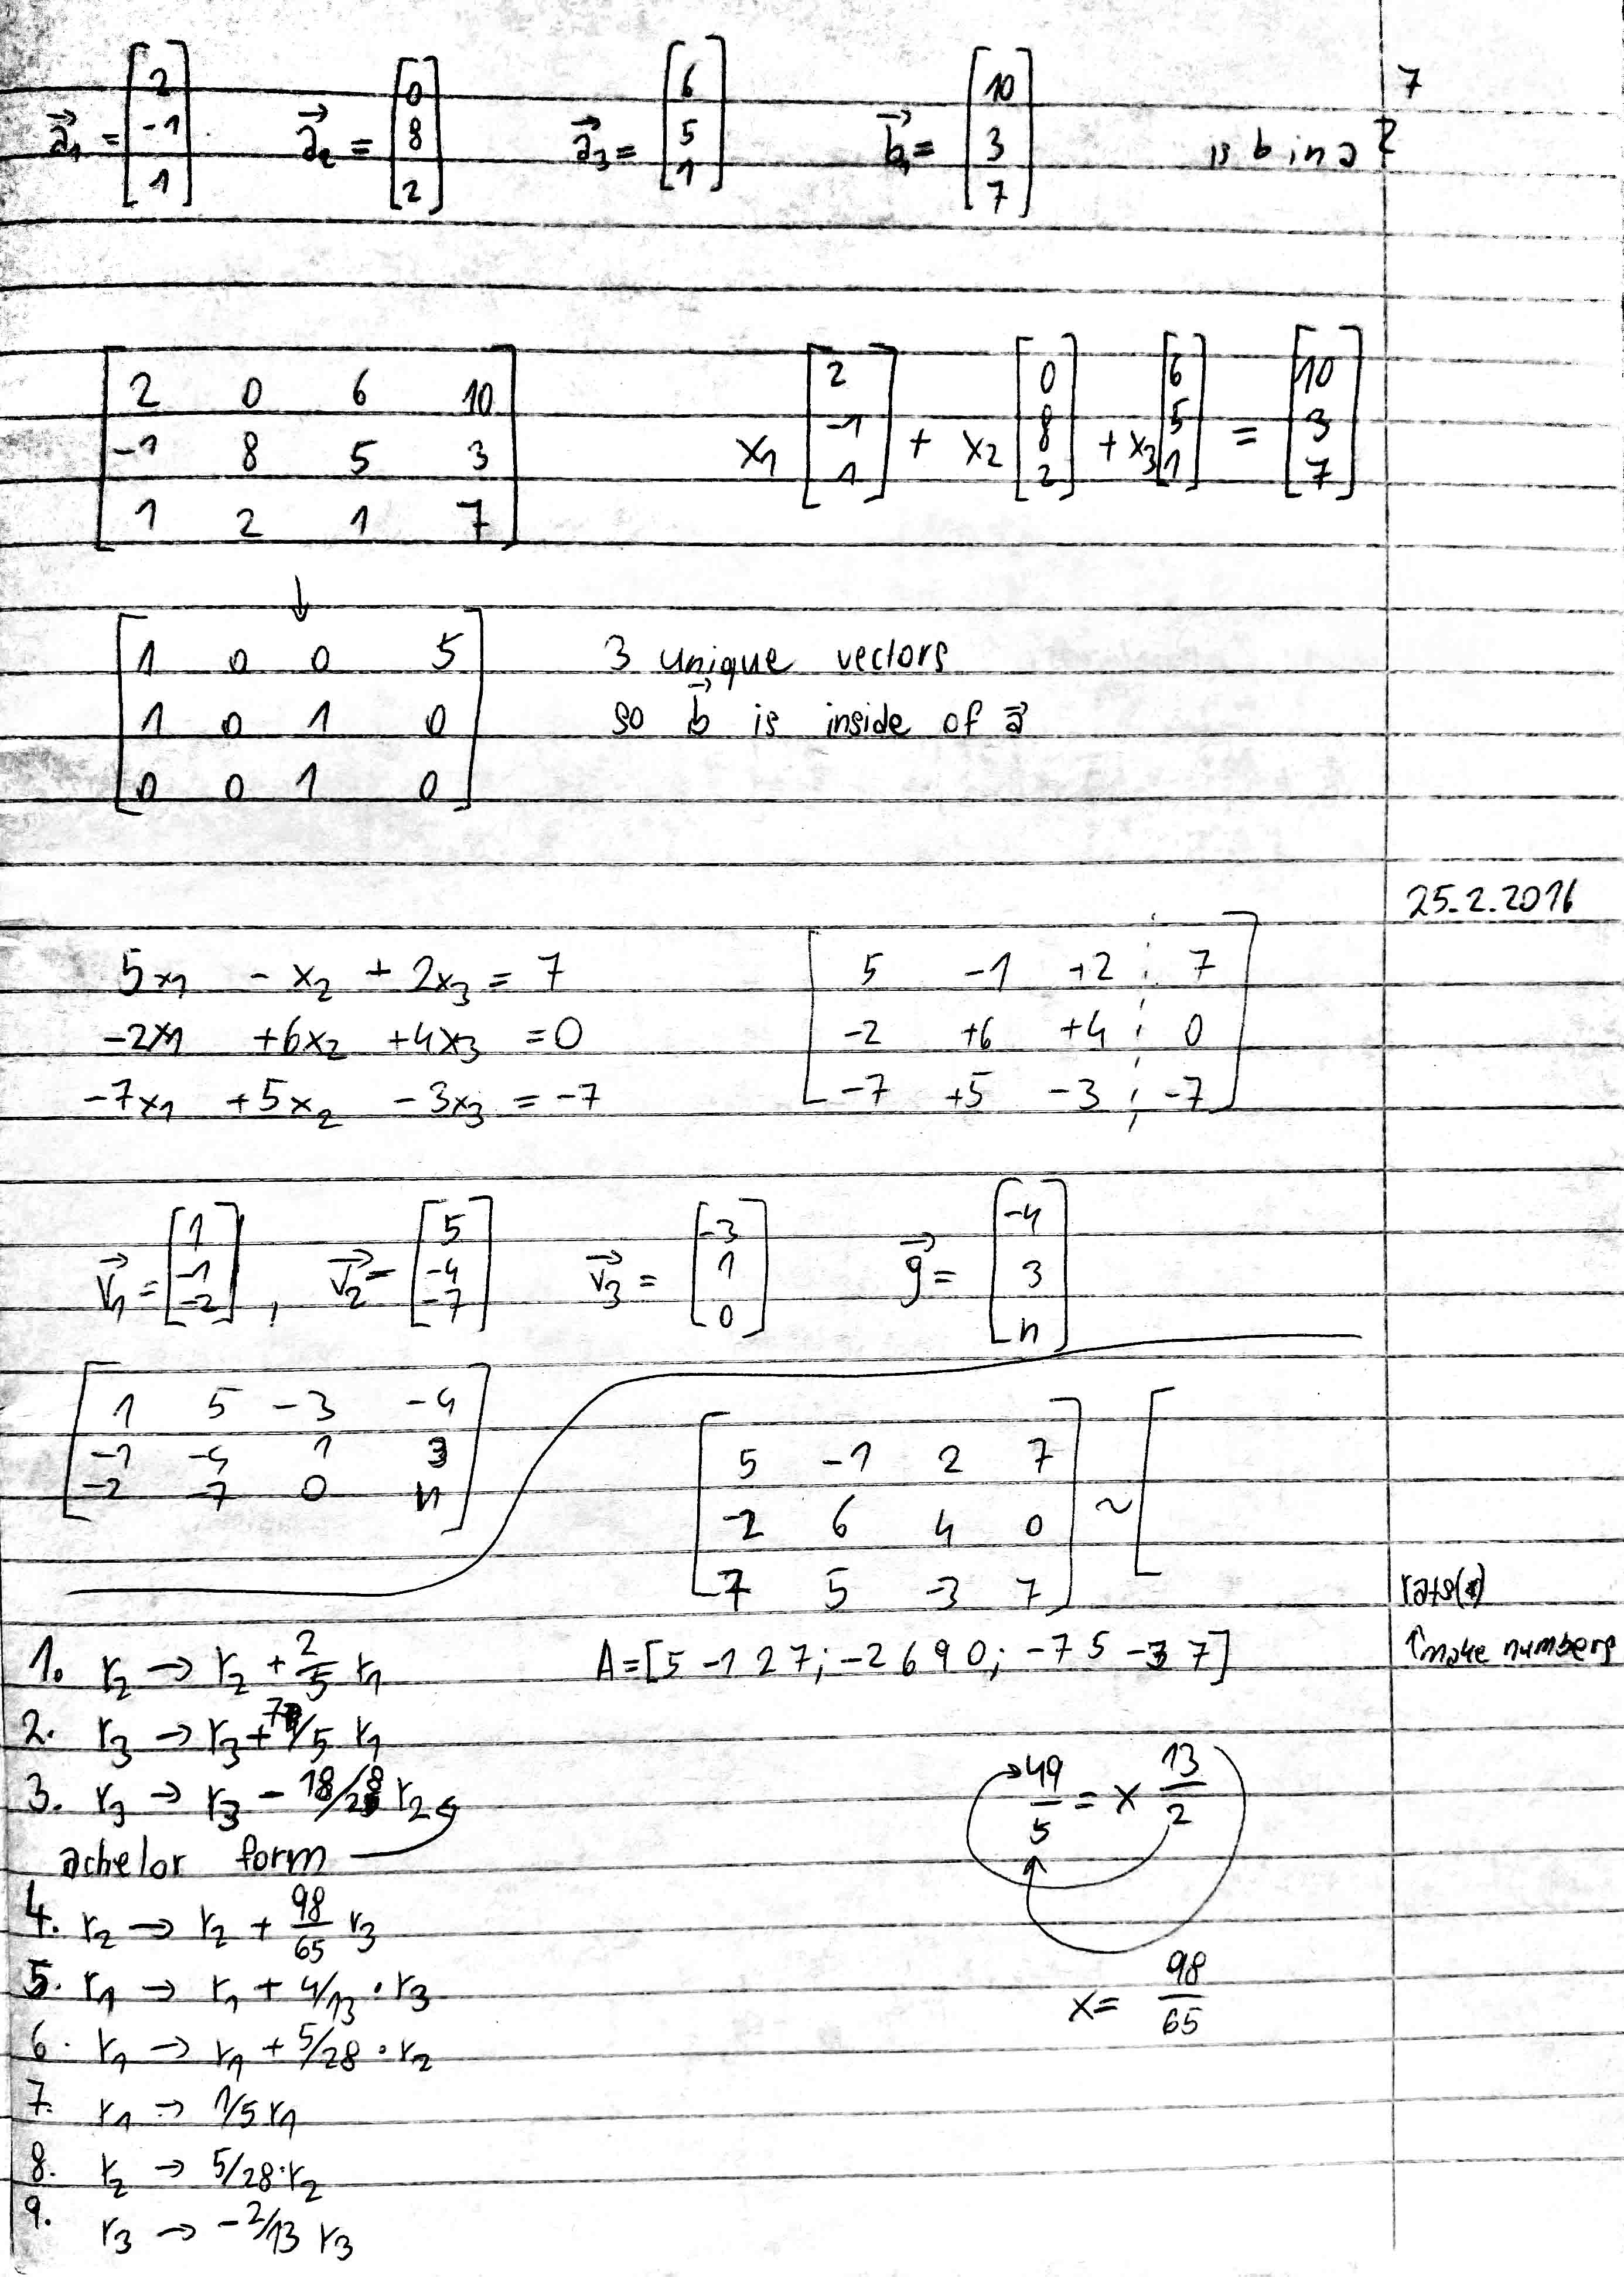 7
a⃗1 = [2 -1 1] a⃗2 = [0 8 2] a⃗3 = [6 5 1] b⃗1 = [10 3 7] is b in a ?
[2 0 6 10
-1 8 5 3
1 2 1 7]
x1 [2 -1 1] + x2 [0 8 2] + x3 [6 5 1] = [10 3 7]
↓
[1 0 0 5
1 0 1 0
0 0 1 0]
3 unique vectors
so b⃗ is inside of a⃗
25.2.2016
5x1 - x2 + 2x3 = 7
-2x1 +6x2 +4x3 = 0
-7x1 +5x2 -3x3 = -7
[5 -1 +2 ¦ 7
-2 +6 +4 ¦ 0
-7 +5 -3 ¦ -7]
v⃗1 = [1 -1 -2], v⃗2 = [5 -4 -7] v⃗3 = [-3 1 0] g⃗ = [-4 3 n]
[1 5 -3 -4
-1 -4 1 3
-2 -7 0 n]
[5 -1 2 7
-2 6 4 0
-7 5 -3 7] ~ [
↑make numbers
A=[5 -1 2 7; -2 6 9 0; -7 5 -3 7]
1. r2 → r2 + 2/5 r1
2. r3 → r3 + 7/5 r1
3. r3 → r3 - 18/28 r2
achelor form
4. r2 → r2 + 98/65 r3
5. r1 → r1 + 4/13 · r3
6. r1 → r1 + 5/28 · r2
7. r1 → 1/5 r1
8. r2 → 5/28 · r2
9. r3 → -2/13 r3
49/5 = x 13/2
x = 98/65